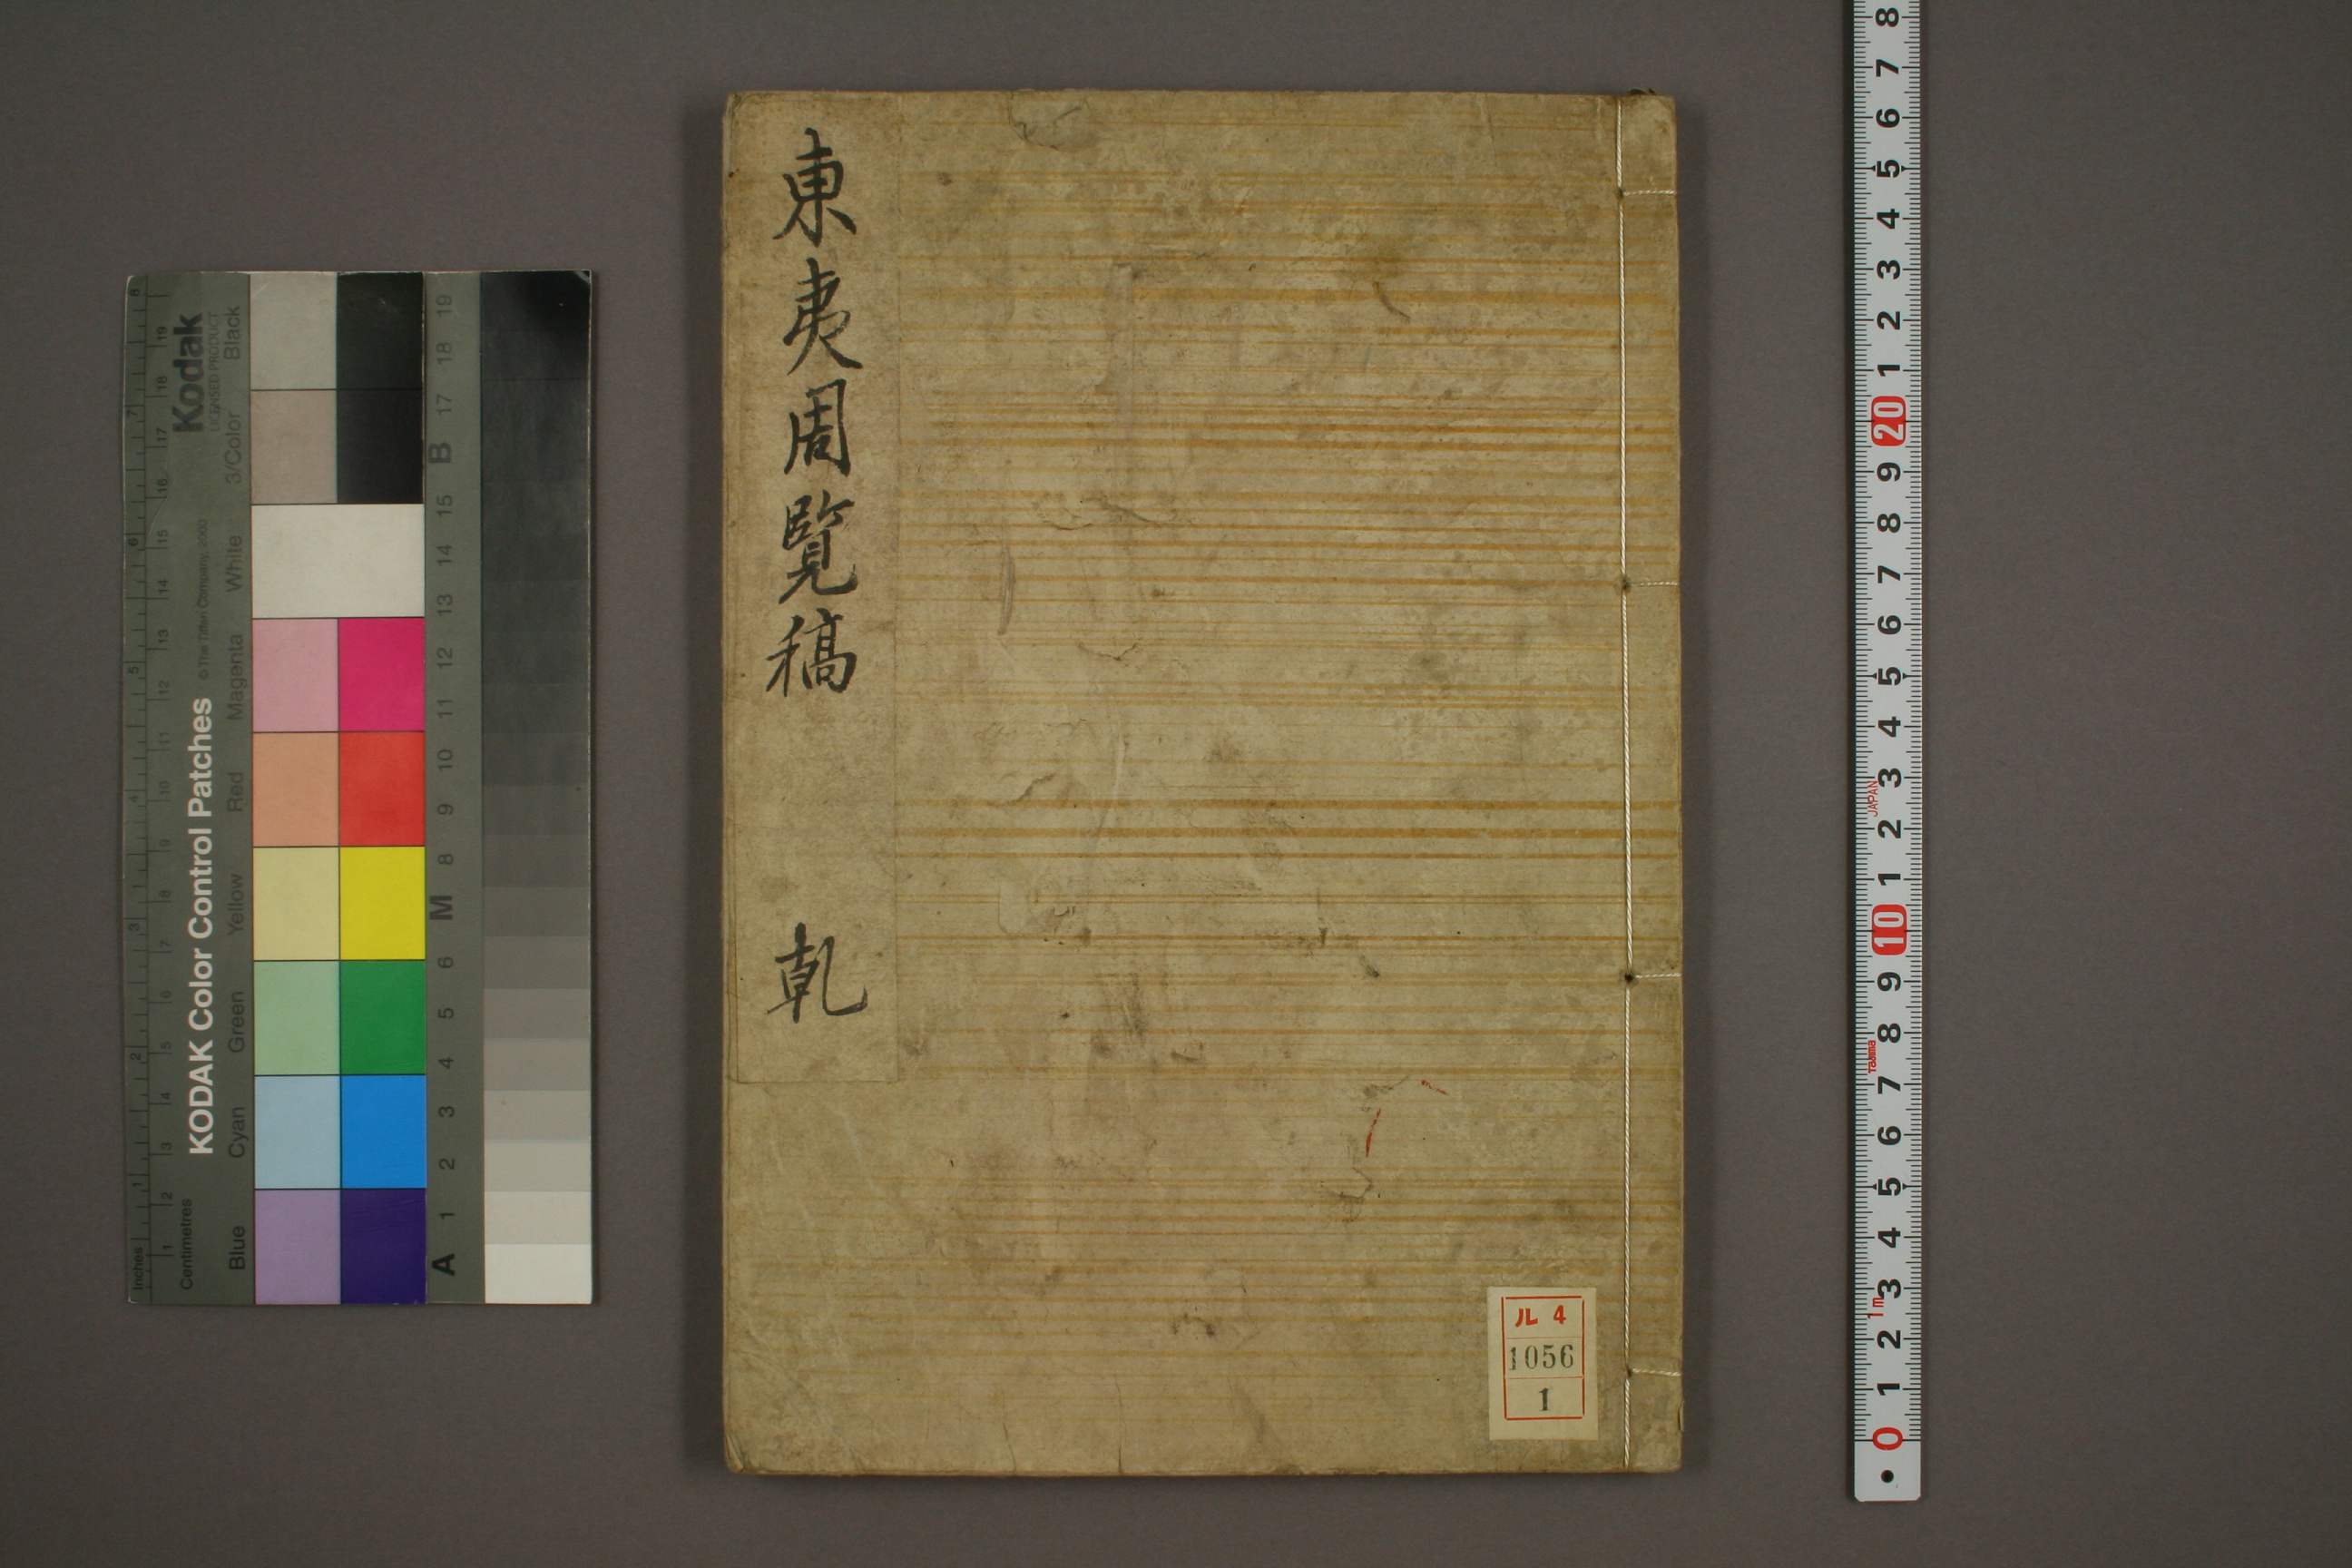 東夷周覧稿 乾
ル 4
1056
1
Kodak
LICENSED PRODUCT
KODAK Color Control Patches
© The Tiffen Company, 2000
Inches
Centimetres
Blue Cyan Green Yellow Red Magenta White 3/Color Black
A 1 2 3 4 5 6 M 8 9 10 11 12 13 14 15 B 17 18 19
1 2 3 4 5 6 7 8
1 2 3 4 5 6 7 8 9 10 11 12 13 14 15 16 17 18 19
8 7 6 5 4 3 2 1 20 9 8 7 6 5 4 3 2 1 10 9 8 7 6 5 4 3 2 1 0
JAPAN
Tajima
1m